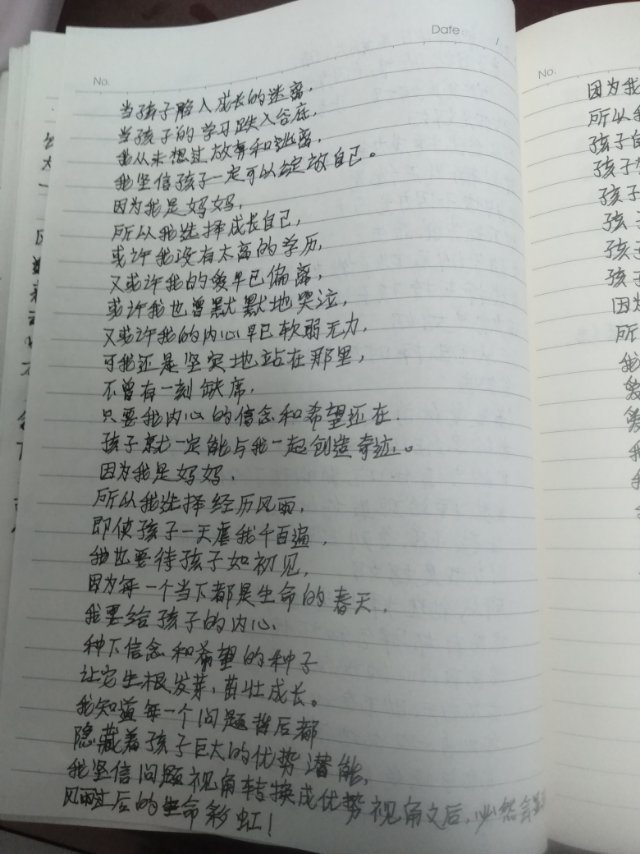 Date
No.
当孩子陷入成长的迷雾，
当孩子的学习跌入谷底，
我从未想过放弃和逃离，
我坚信孩子一定可以绽放自己。
因为我是妈妈，
所以我选择成长自己，
或许我没有太高的学历，
又或许我的爱早已偏离，
或许我也曾默默地哭泣，
又或许我的内心早已软弱无力，
可我还是坚定地站在那里，
不曾有一刻缺席，
只要我内心的信念和希望还在，
孩子就一定能与我一起创造奇迹。
因为我是妈妈，
所以我选择经历风雨，
即使孩子一天虐我千百遍，
我也要待孩子如初见，
因为每一个当下都是生命的春天，
我要给孩子的内心，
种下信念和希望的种子
让它生根发芽，茁壮成长。
我知道每一个问题背后都
隐藏着孩子巨大的优势潜能，
我坚信问题视角转换成优势视角之后，必然会
风雨过后的生命彩虹！
No.
因为我
所以我
孩子
孩子
孩子
孩子
孩子
孩子
因为
所
我
爱
爱
我
我